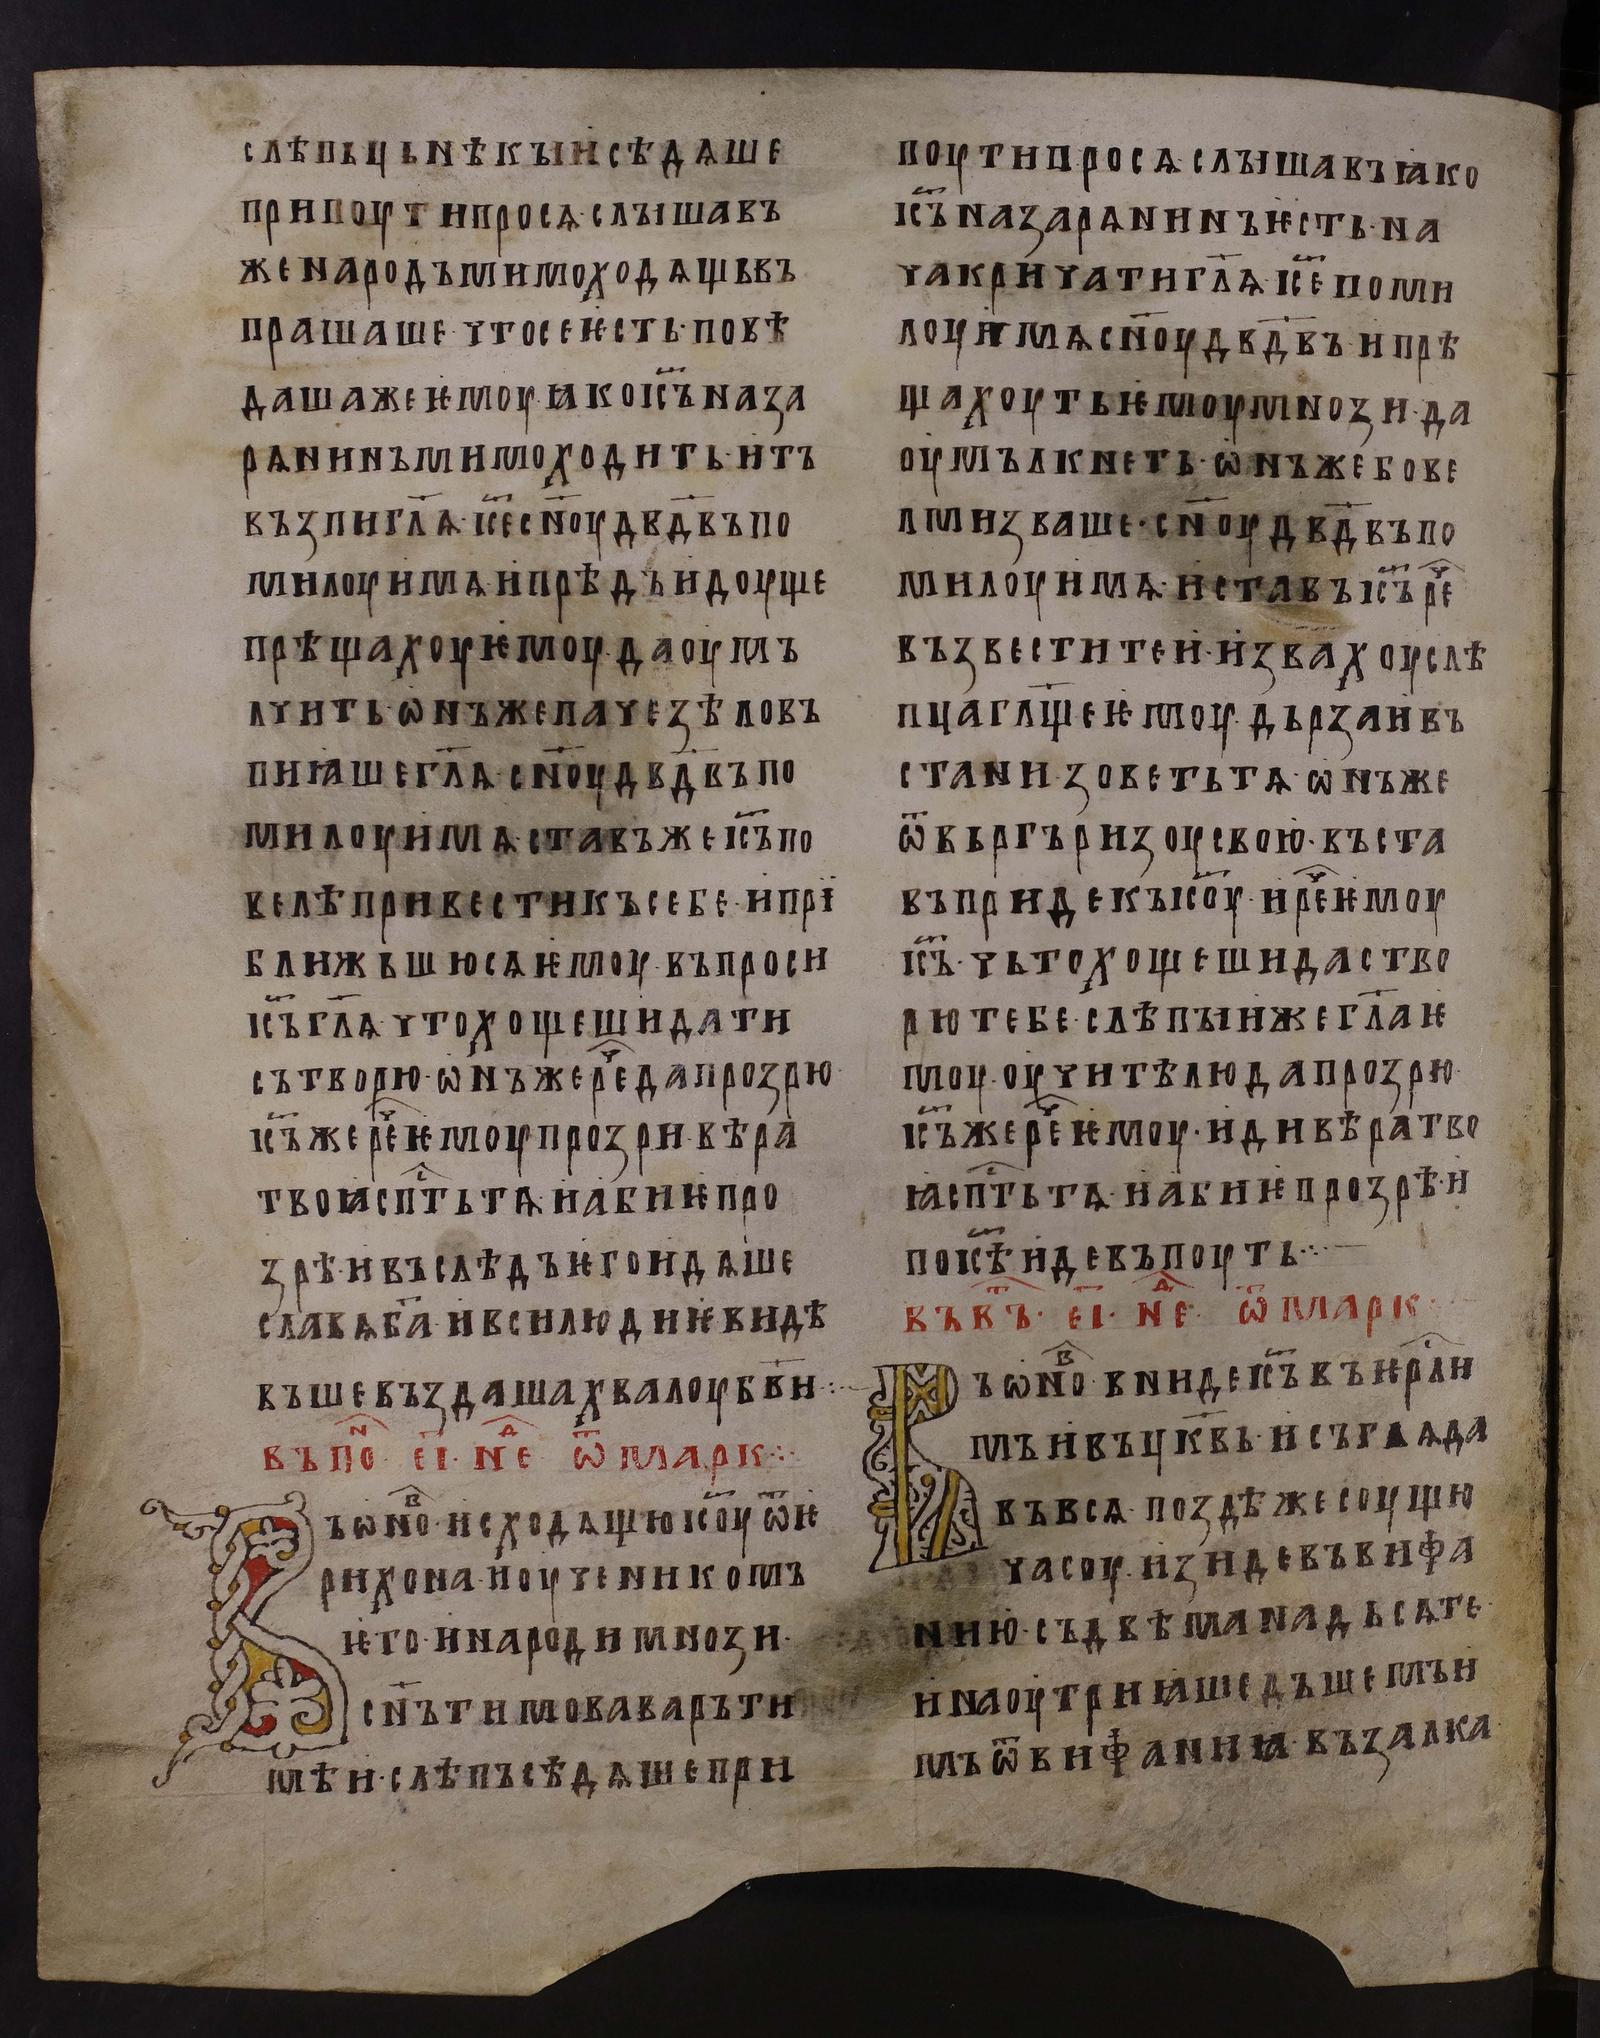 слѣпьць нѣкъіи сѣдѧше
при поути просѧ· слъішавъ
же народъ мимоходѧщь въ
прашаше· что се ѥсть· повѣ
даша же ѥмоу· ꙗко іс҃ъ наза
рѧнинъ мимоходить· и тъ
възпи гл҃ѧ· іс҃е сн҃оу дв҃двъ по
милоуи мѧ· и прѣдъидоуще
прѣщахоу ѥмоу· да оумъ
лчить· ѡнъ же паче зѣло въ
пиꙗше гл҃ѧ· сн҃оу дв҃двъ по
милоуи мѧ· ставъ же іс҃ъ по
велѣ привести къ себе· и при
ближьшю сѧ ѥмоу· въпроси
іс҃ъ гл҃ѧ· что хощеши да ти
сътворю· ѡнъ же реч҃е да прозрю·
іс҃ъ же реч҃е ѥмоу прозри· вѣра
твоꙗ спс҃ть тѧ· и абиѥ про
зрѣ· и въслѣдъ ѥго идѧше
славѧ б҃а· и вси людиѥ видѣ
въше въздаша хвалоу бв҃и·:·
въ пон҃· еі҃· нед҃· ѿ марк·:·
Въ ѡно в҃· исходѧщю іс҃оу ѿ ѥ
рихона· и оученикомъ
ѥго· и народи мнози·
сн҃ъ тимова варъти
мѣи· слѣпъ сѣдѧше при
поути просѧ· слъішавъ ꙗко
іс҃ъ назарѧнинъ ѥсть· на
ча кричати гл҃ѧ· іс҃е поми
лоуи мѧ сн҃оу дв҃двъ· и прѣ
щахоуть ѥмоу мнози· да
оумълкнеть· ѡнъ же бове
лми зваше· сн҃оу дв҃двъ по
милоуи мѧ· и ставъ іс҃ъ реч҃
възвестите и· и звахоу слѣ
пца гл҃ще ѥмоу· дързаи въ
стани зоветь тѧ· ѡнъ же
ѿвьргъ ризоу свою· въста
въ приде къ іс҃оу· и реч҃е ѥмоу
іс҃ъ· чьто хощеши да ство
рю тебе· слѣпъіи же гл҃а ѥ
моу· оучитѣлю да прозрю·
іс҃ъ же реч҃е ѥмоу· иди вѣра тво
ꙗ спс҃ть тѧ· и абиѥ прозрѣ· и
по іс҃ѣ иде въ поуть·:·
въ вт҃ъ· еі҃· нед҃· ѿ марк·
Въ ѡно в҃· вниде іс҃ъ въ ѥрс҃ли
мъ и въ цр҃квь· и съглѧда
въ всѧ· поздѣ же соущю
часоу· изиде въ вифа
нию· съ двѣма надьсѧте·
и наоутриꙗ шедъшемъ и
мъ ѿ вифаниꙗ· възалка